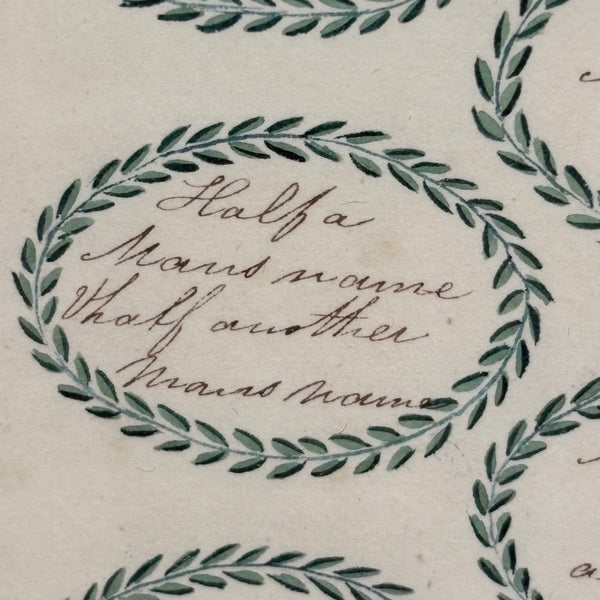 Half a
Mans name
& half another
mans name